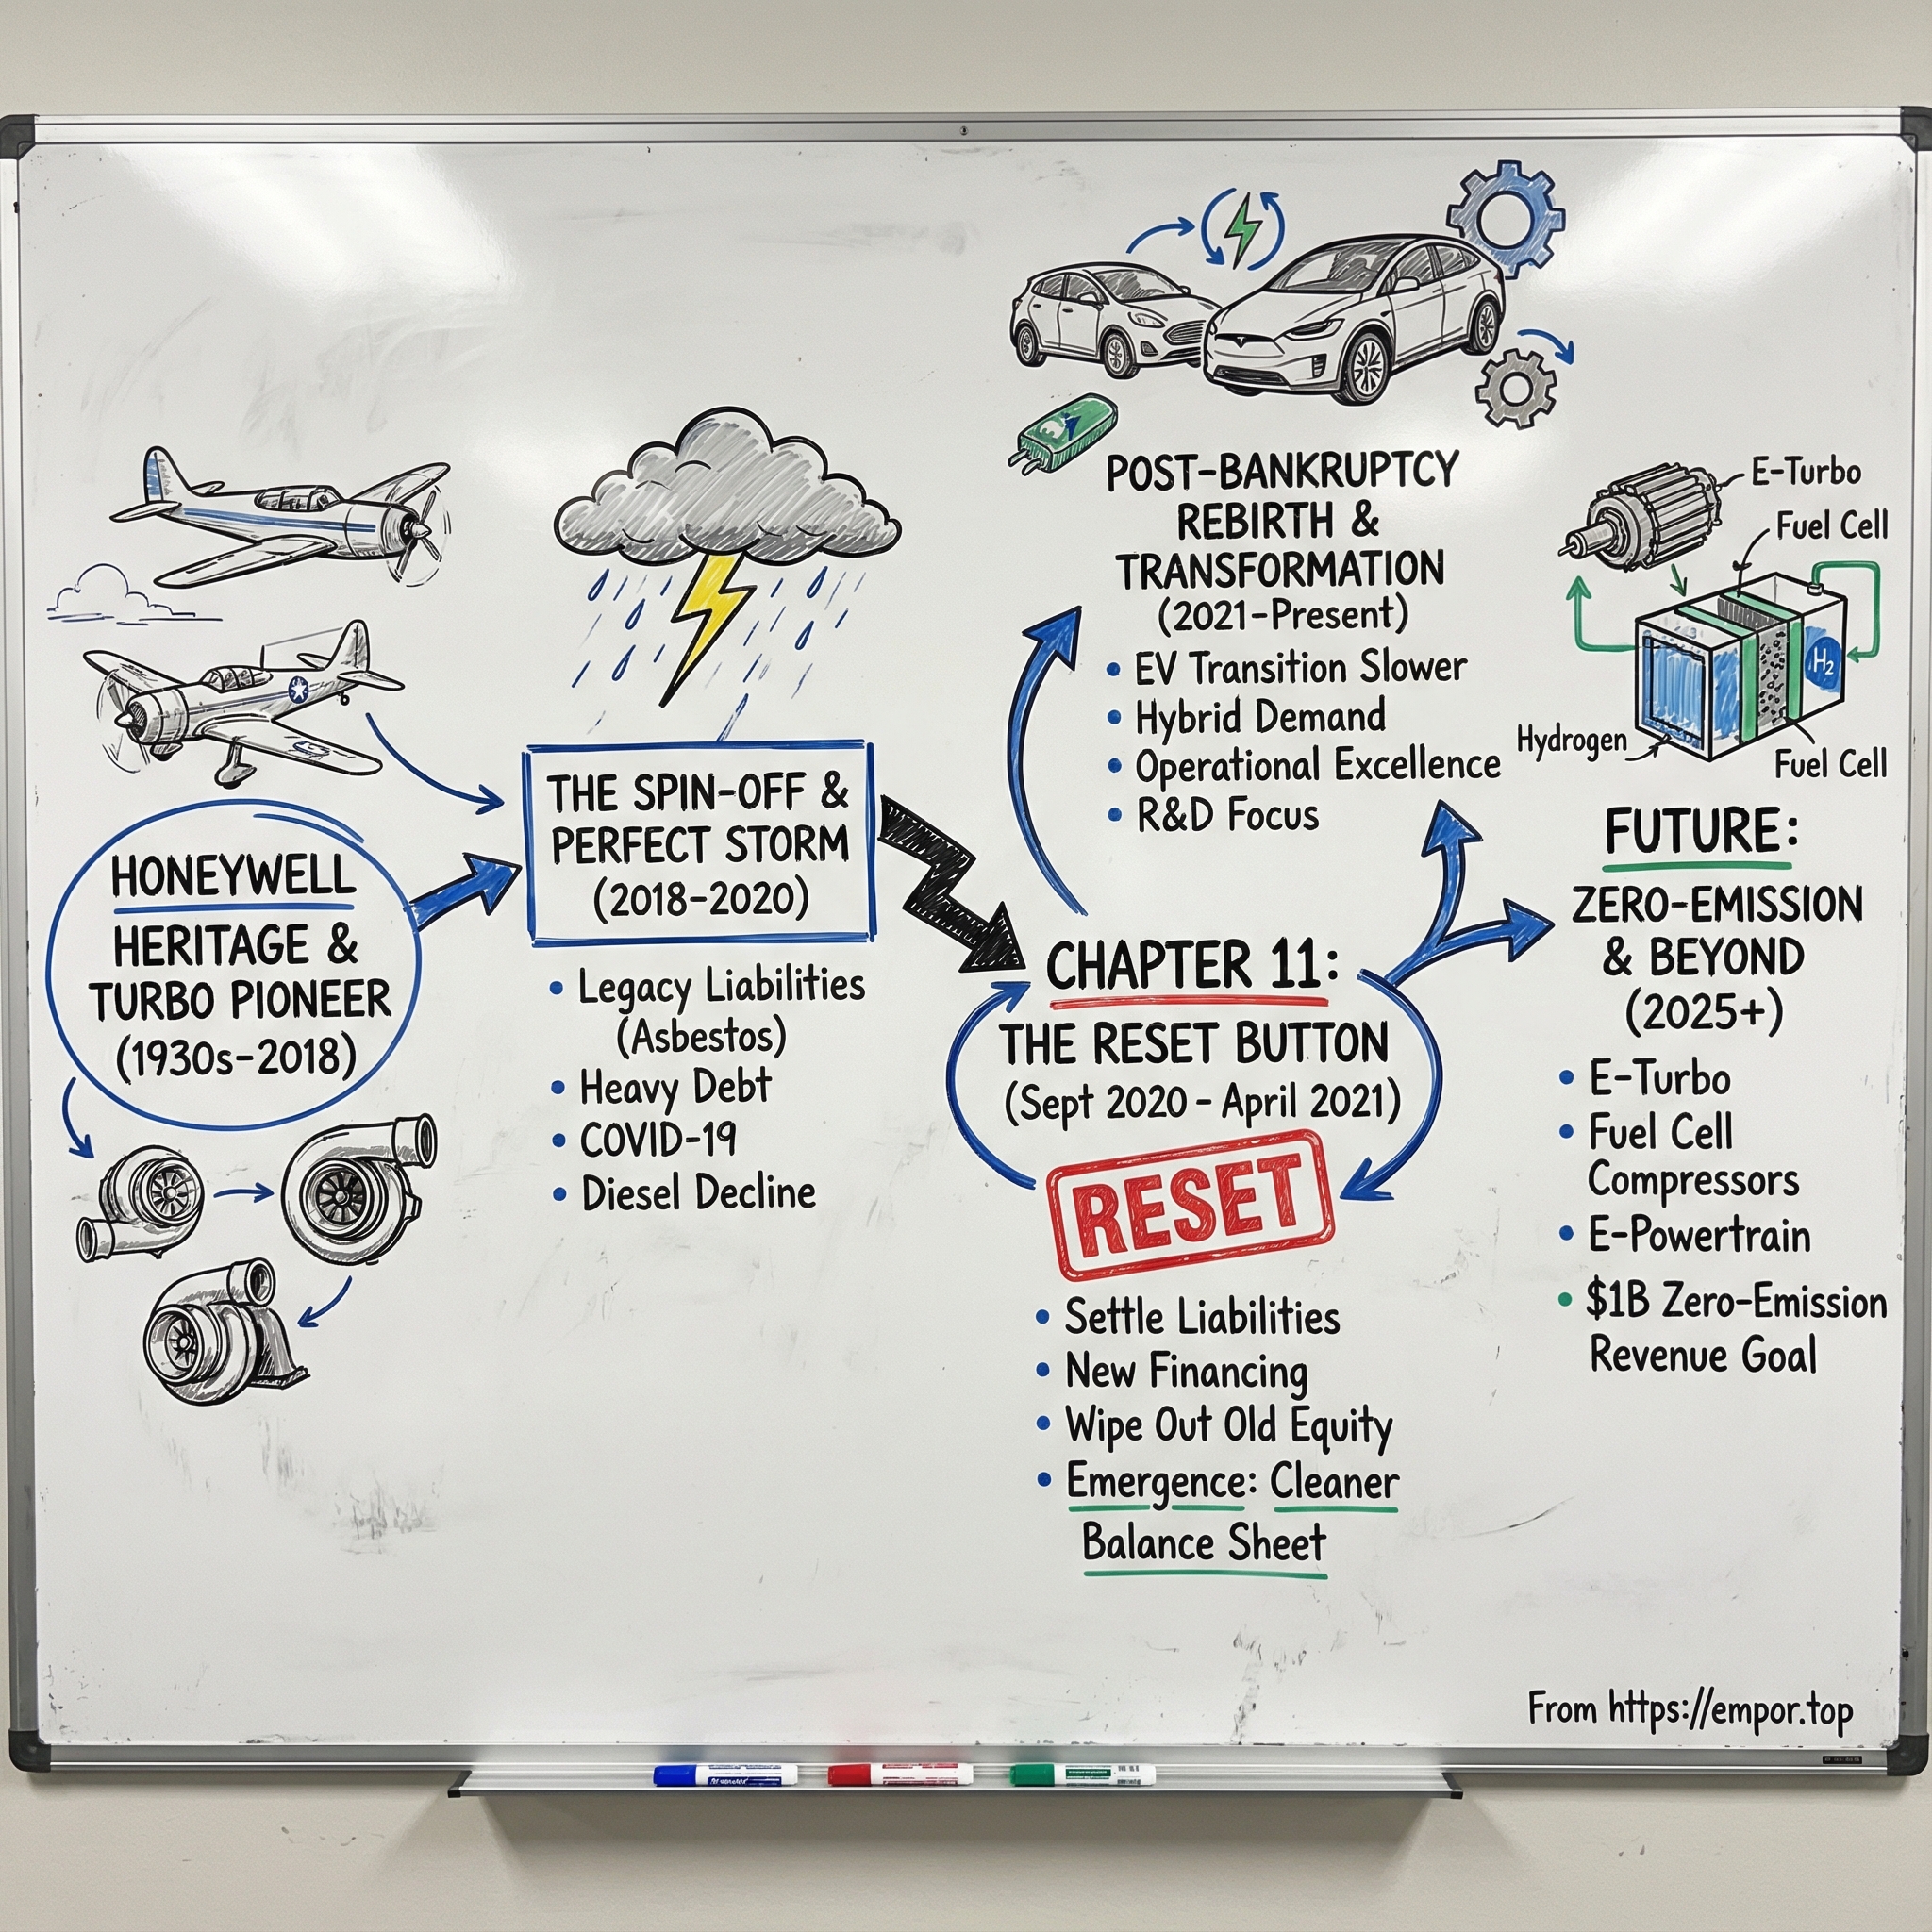 HONEYWELL
HERITAGE &
TURBO PIONEER
(1930s-2018)
THE SPIN-OFF &
PERFECT STORM
(2018-2020)
• Legacy Liabilities
(Asbestos)
• Heavy Debt
• COVID-19
• Diesel Decline
CHAPTER 11:
THE RESET BUTTON
(Sept 2020 - April 2021)
RESET
• Settle Liabilities
• New Financing
• Wipe Out Old Equity
• Emergence: Cleaner
Balance Sheet
POST-BANKRUPTCY
REBIRTH &
TRANSFORMATION
(2021-Present)
• EV Transition Slower
• Hybrid Demand
• Operational Excellence
• R&D Focus
E-Turbo
Fuel Cell
H2
Hydrogen
Fuel Cell
FUTURE:
ZERO-EMISSION
& BEYOND
(2025+)
• E-Turbo
• Fuel Cell
Compressors
• E-Powertrain
• $1B Zero-Emission
Revenue Goal
From https://empor.top